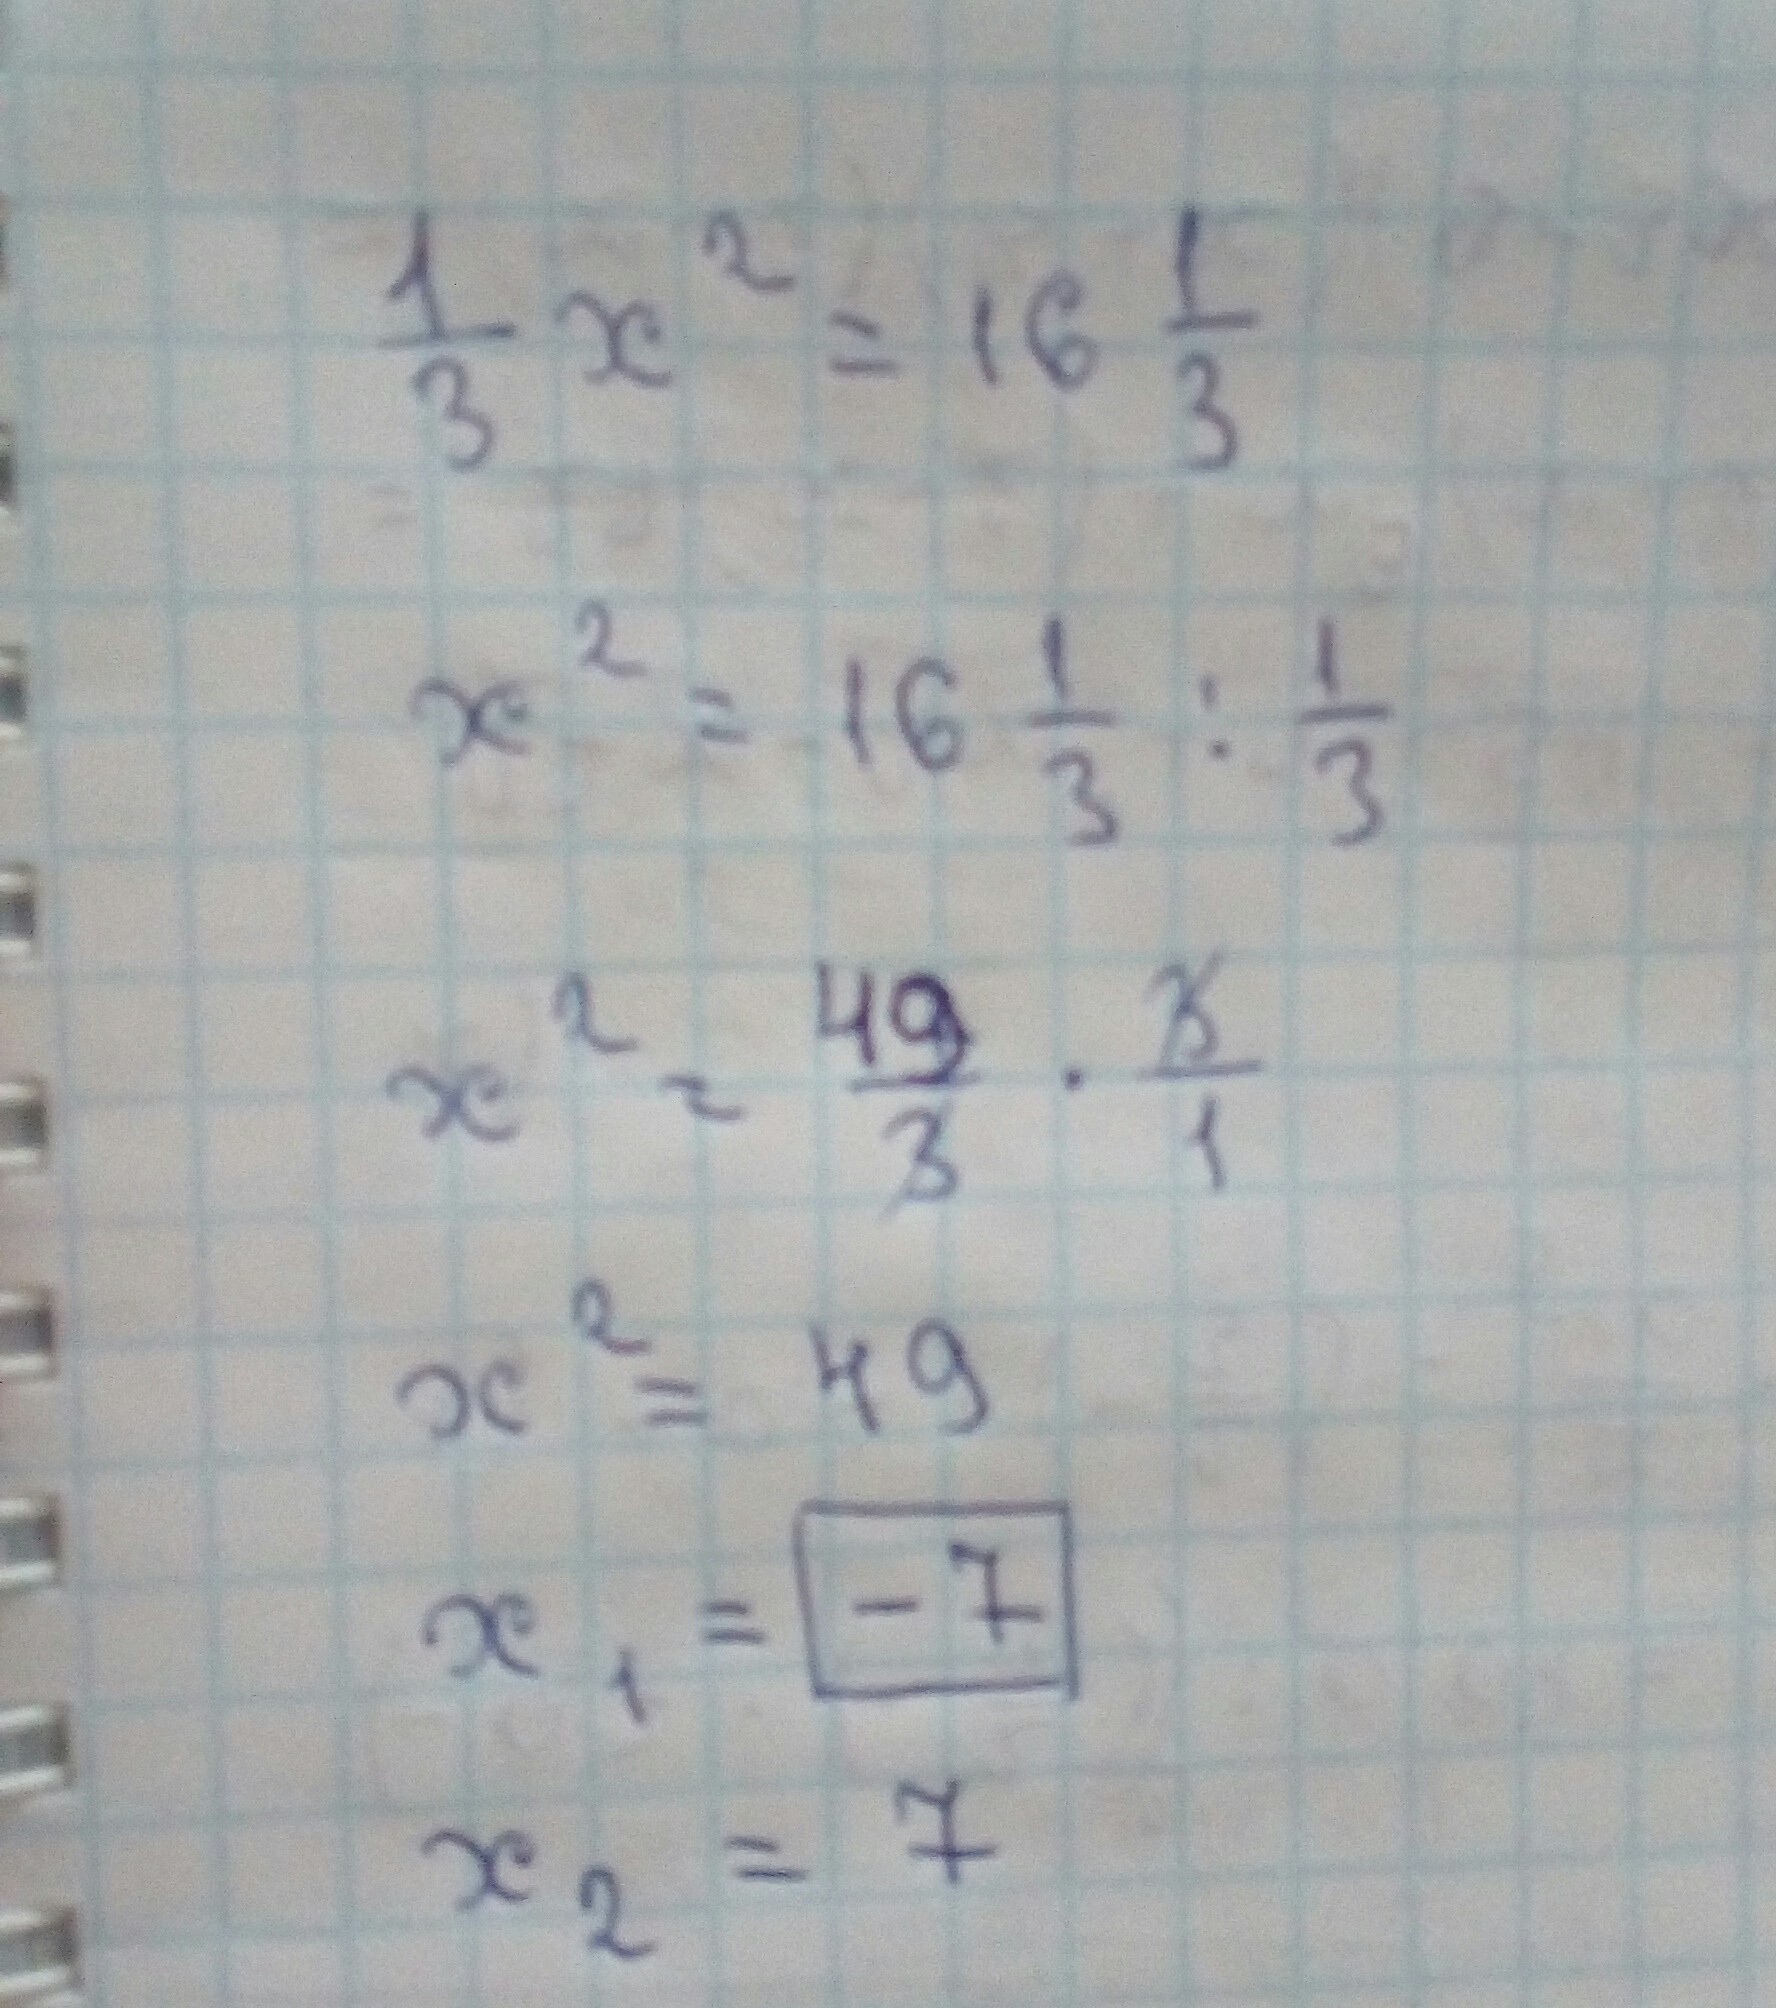 1/3 x² = 16 1/3
x² = 16 1/3 : 1/3
x² = 49/3 · 3/1
x² = 49
x₁ = -7
x₂ = 7